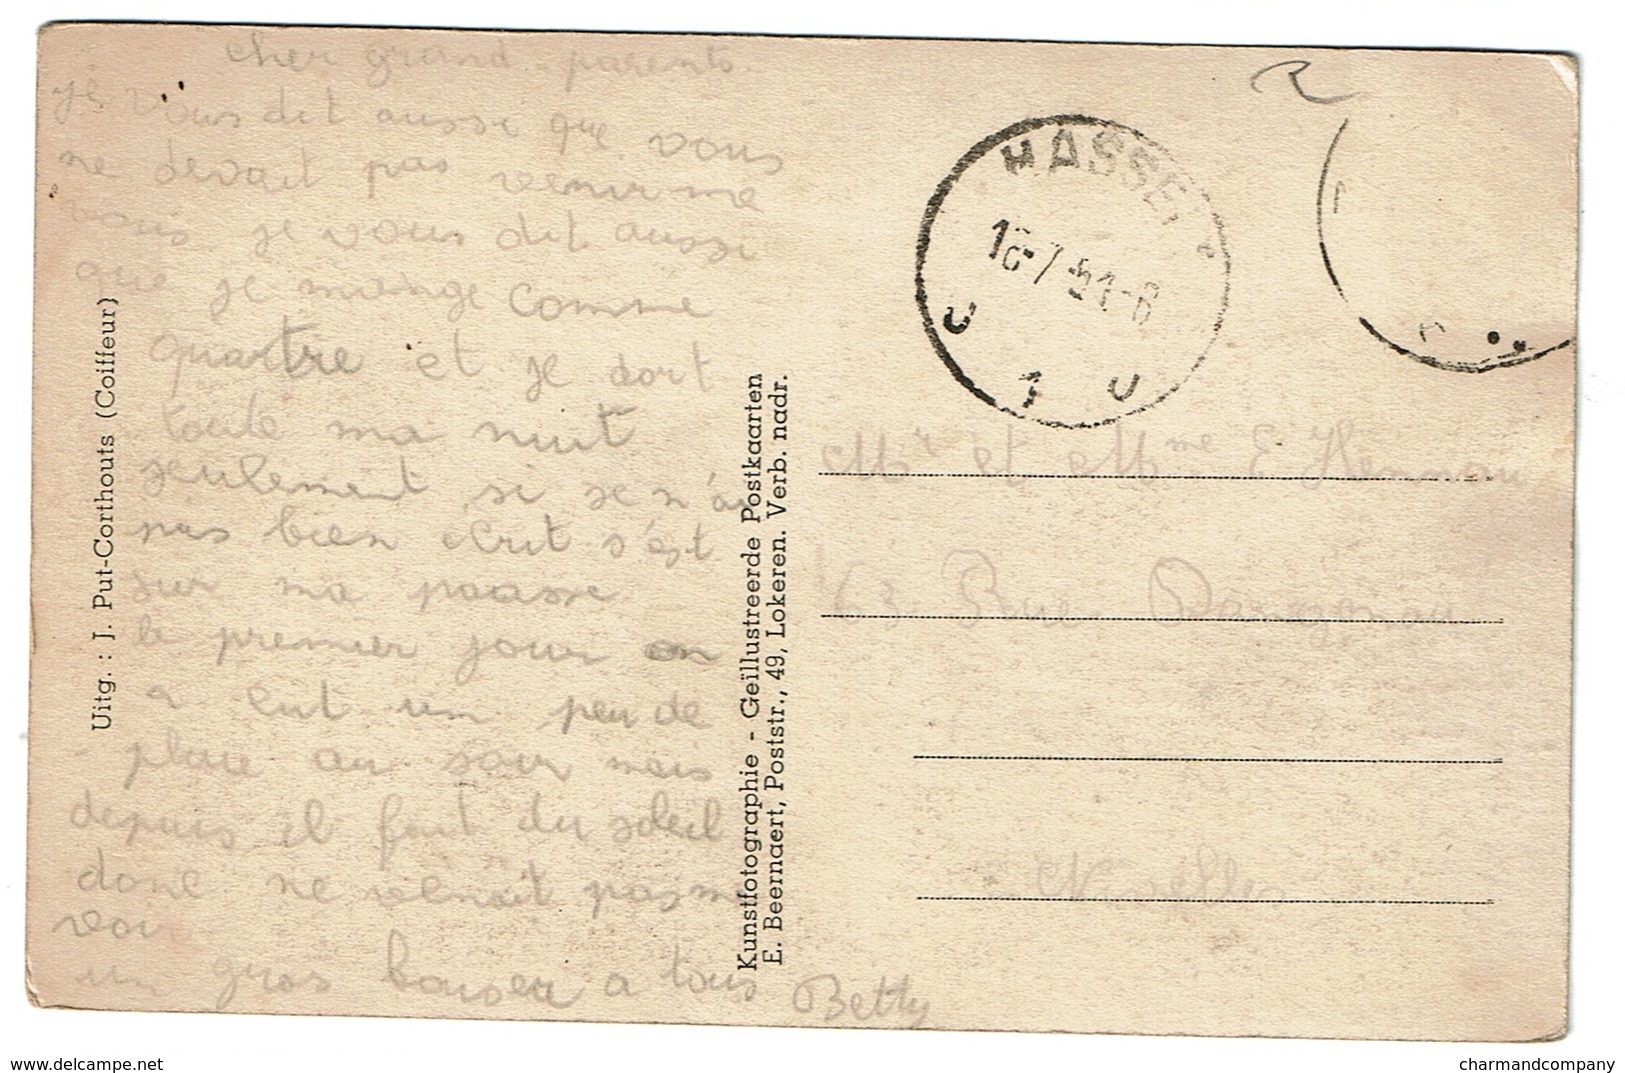 cher grand-parents
je vous dit aussi que vous
ne devait pas venir me
vois je vous dit aussi
que je mange comme
quartre et je dort
toute ma nuit
seulement si je n'ai
pas bien écrit s'est
sur ma paasse
le premier jour on
a eut un peu de
place au soir mais
depuis il fait du soleil
donc ne venait pas me
voir
un gros baiser a tous Betty
Uitg. : J. Put-Corthouts (Coiffeur)
Kunstfotographie - Geïllustreerde Postkaarten
E. Beernaert, Poststr., 49, Lokeren. Verb. nadr.
HASSEL
16-7 51-8
U 1 U
Mr et Mme E
63 Rue
Nivelles
delcampe.net
charmandcompany